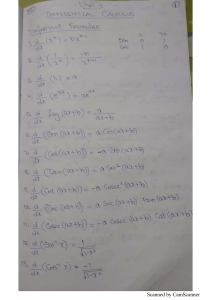 DIFFERENTIAL CALCULUS
Important Formulae
1. d/dx (xⁿ) = nxⁿ⁻¹
2. d/dx (1/xⁿ) = -n/xⁿ⁺¹
3. d/dx
4. d/dx
5. d/dx log (ax+b) = a/(ax+b)
6. d/dx (Sin (ax+b)) = a Cos (ax+b)
7. d/dx (Cos (ax+b)) = -a Sin (ax+b)
8. d/dx (Tan (ax+b)) = a Sec² (ax+b)
9. d/dx (Cot (ax+b)) = -a Cosec² (ax+b)
10. d/dx (Sec (ax+b)) = a Sec (ax+b) Tan (ax+b)
11. d/dx (Cosec (ax+b)) = -a Cosec (ax+b) Cot (ax+b)
12. d/dx (Sin⁻¹ x) = 1/√(1-x²)
13. d/dx (Cos⁻¹ x) = -1/√(1-x²)
Scanned by CamScanner